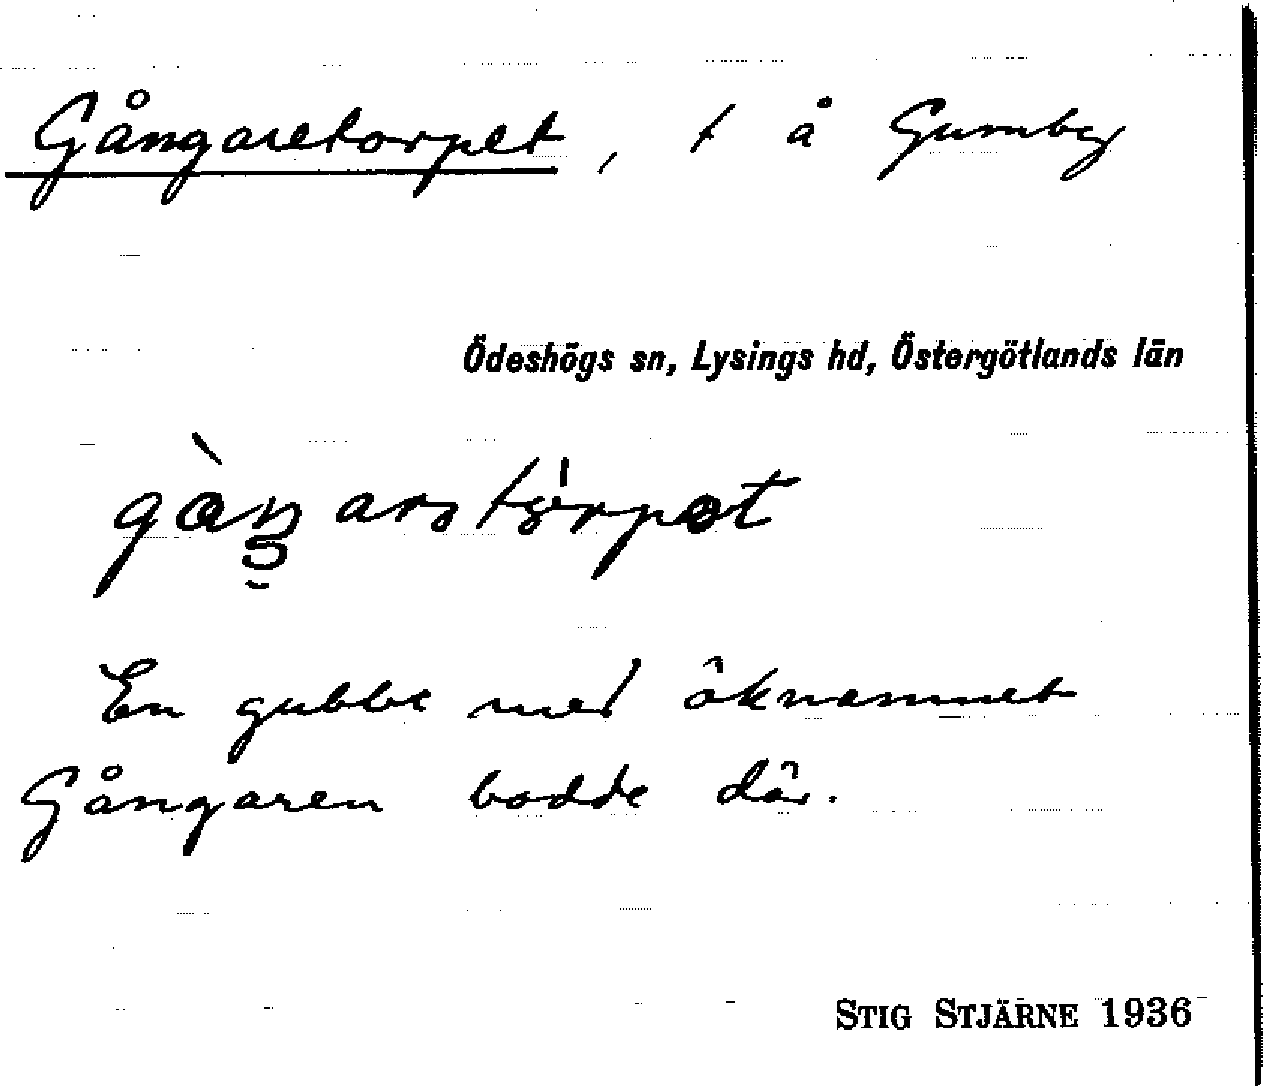 Gångaretorpet, t å Gumby
Ödeshögs sn, Lysings hd, Östergötlands län
En gubbe med öknamnet
Gångaren bodde där.
STIG STJÄRNE 1936